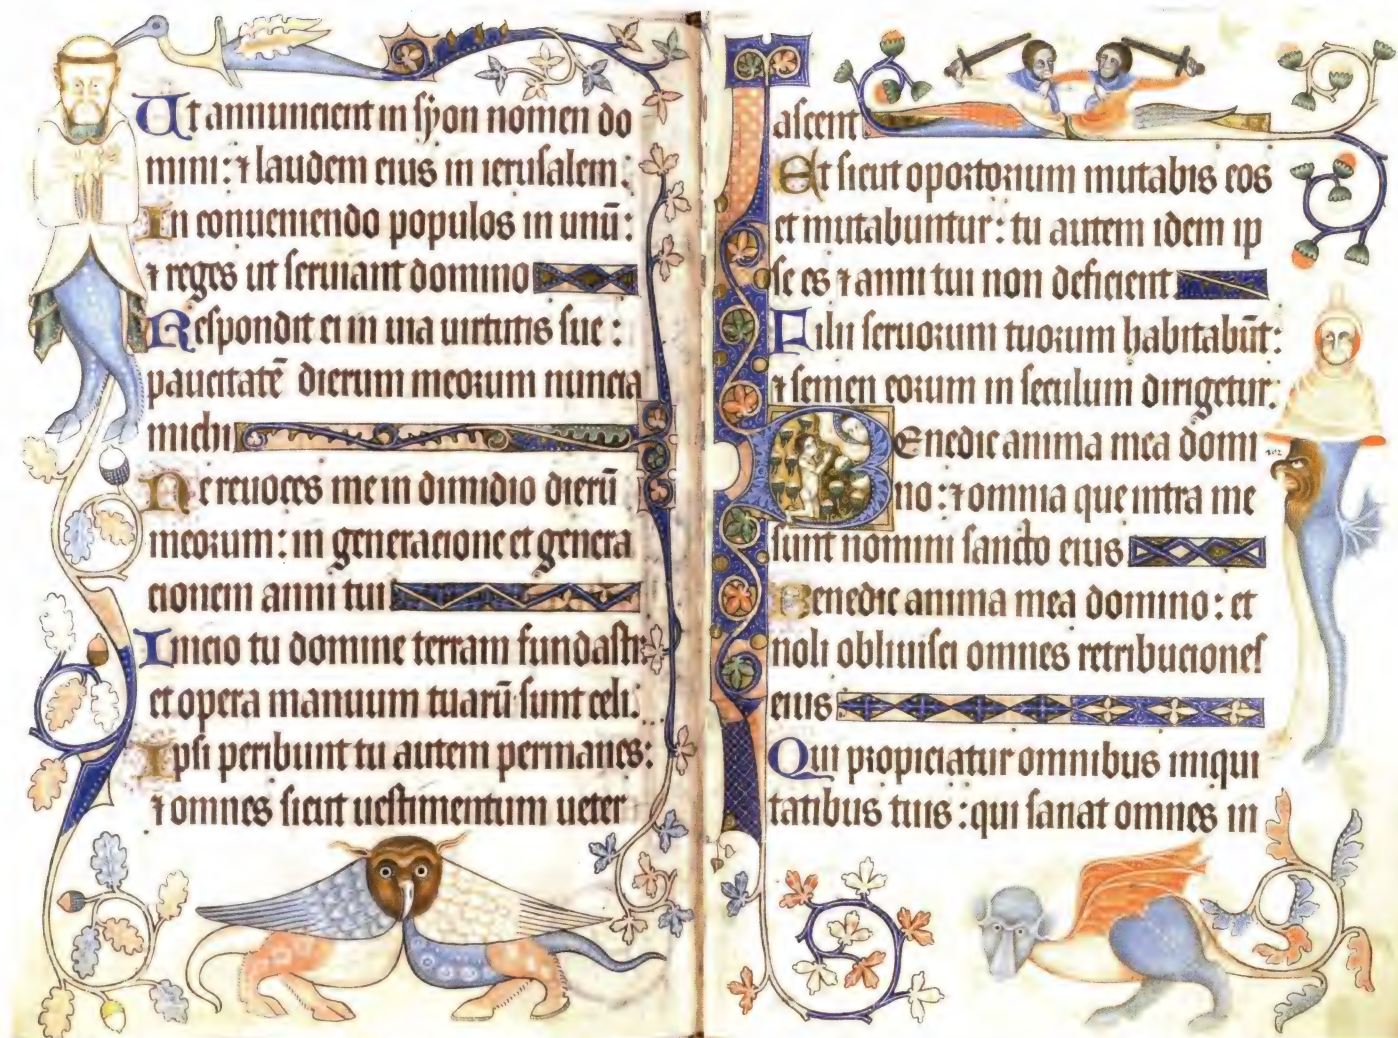 Ut annuncient in syon nomen do
mini: ⁊ laudem eius in ierusalem:
In conueniendo populos in unū:
⁊ reges ut seruiant domino
Respondit ei in uia uirtutis sue:
paucitatē dierum meorum nuncia
michi
Ne reuoces me in dimidio dierū
meorum: in generacione et genera
cionem anni tui
Inicio tu domine terram fundasti:
et opera manuum tuarū sunt celi:
Ipsi peribunt tu autem permanes:
⁊ omnes sicut uestimentum ueter
ascent
Et sicut oportorium mutabis eos
et mutabuntur: tu autem idem ip
se es ⁊ anni tui non deficient
Filii seruorum tuorum habitabūt:
⁊ semen eorum in seculum dirigetur:
Benedic anima mea domi
no: ⁊ omnia que intra me
sunt nomini sancto eius
Benedic anima mea domino: et
noli obliuisci omnes retribuciones
eius
Qui propiciatur omnibus iniqui
tatibus tuis: qui sanat omnes in